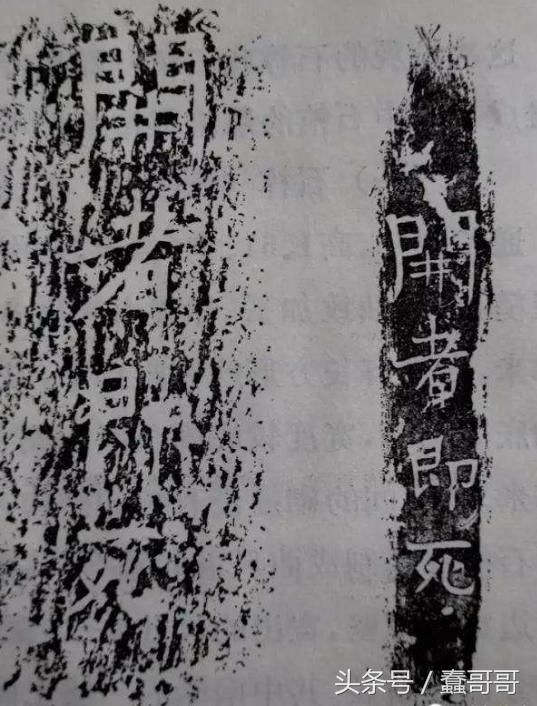 開者即死
開者則死
头条号 / 蠢哥哥